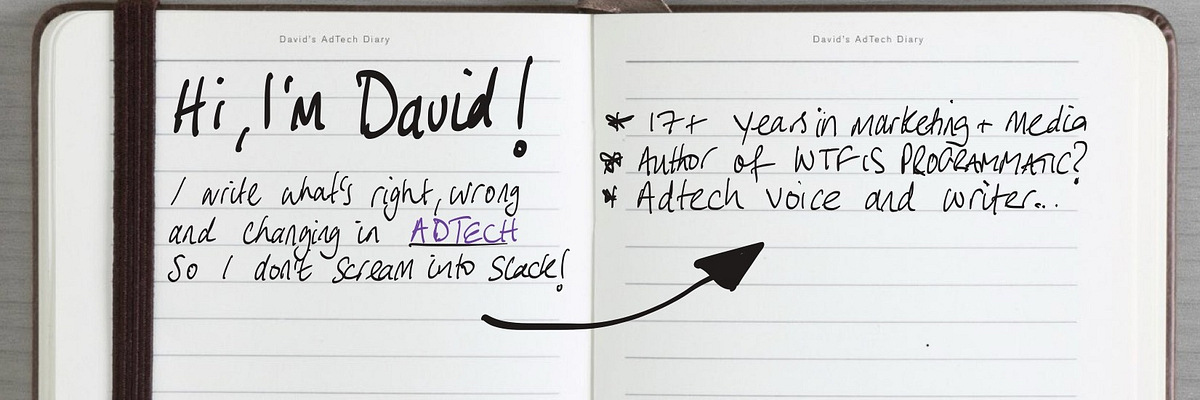 David's AdTech Diary
Hi, I'm David!
I write what's right, wrong
and changing in ADTECH
So I don't scream into Slack!
David's AdTech Diary
* 17+ years in marketing + Media
* Author of WTF is PROGRAMMATIC?
* Adtech voice and writer...